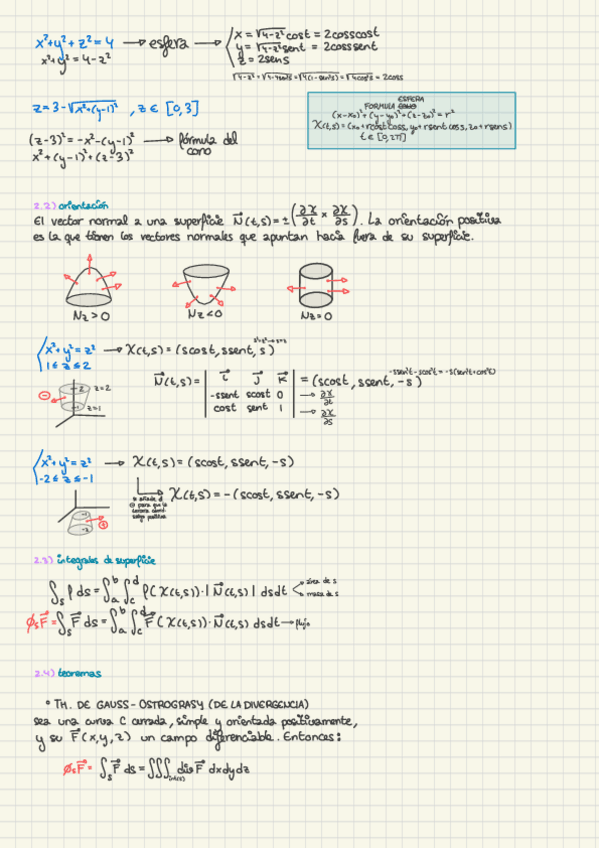 x²+y²+z²=4 → esfera → { x=√4-z² cost = 2cosscost
x²+y²=4-z²
y=√4-z² sent = 2cosssent
z=2sens
√4-z² = √4-4sen²s = √4(1-sen²s) = √4cos²s = 2coss
z=3-√x²+(y-1)² , z∈[0,3]
(z-3)²=-x²-(y-1)² → fórmula del cono
x²+(y-1)²+(z-3)²
ESFERA
FORMULA
(x-x₀)²+(y-y₀)²+(z-z₀)²=r²
X(t,s)=(x₀+rcostcoss, y₀+rsentcoss, z₀+rsens)
t∈[0,2π]
2.2) orientación
El vector normal a una superficie N⃗(t,s)=±(∂X/∂t × ∂X/∂s). La orientación positiva
es la que tienen los vectores normales que apuntan hacia fuera de su superficie.
Nz>0 Nz<0 Nz=0
{ x²+y²=z² → X(t,s)=(scost, ssent, s)
1≤z≤2
N⃗(t,s)= | i⃗ j⃗ k⃗ | = (scost, ssent, -s)
-ssent scost 0 → ∂X/∂t
cost sent 1 → ∂X/∂s
-ssen²t-scos²t=-s(sen²t+cos²t)
2 z=2
1 z=1
{ x²+y²=z² → X(t,s)=(scost, ssent, -s)
-2≤z≤-1
X(t,s)=-(scost, ssent, -s)
-1
-2
2.3) integrales de superficie
∫ₛ ρ ds = ∫ₐᵇ∫꜀ᵈ ρ(X(t,s))·|N⃗(t,s)| dsdt
área de s
masa de s
ϕₛF⃗=∫ₛ F⃗ ds = ∫ₐᵇ∫꜀ᵈ F⃗(X(t,s))·N⃗(t,s) dsdt → flujo
2.4) teoremas
° TH. DE GAUSS-OSTROGRASY (DE LA DIVERGENCIA)
sea una curva C cerrada, simple y orientada positivamente,
y su F⃗(x,y,z) un campo diferenciable. Entonces:
ϕₛF⃗= ∫ₛ F⃗ ds = ∭ div F⃗ dxdydz